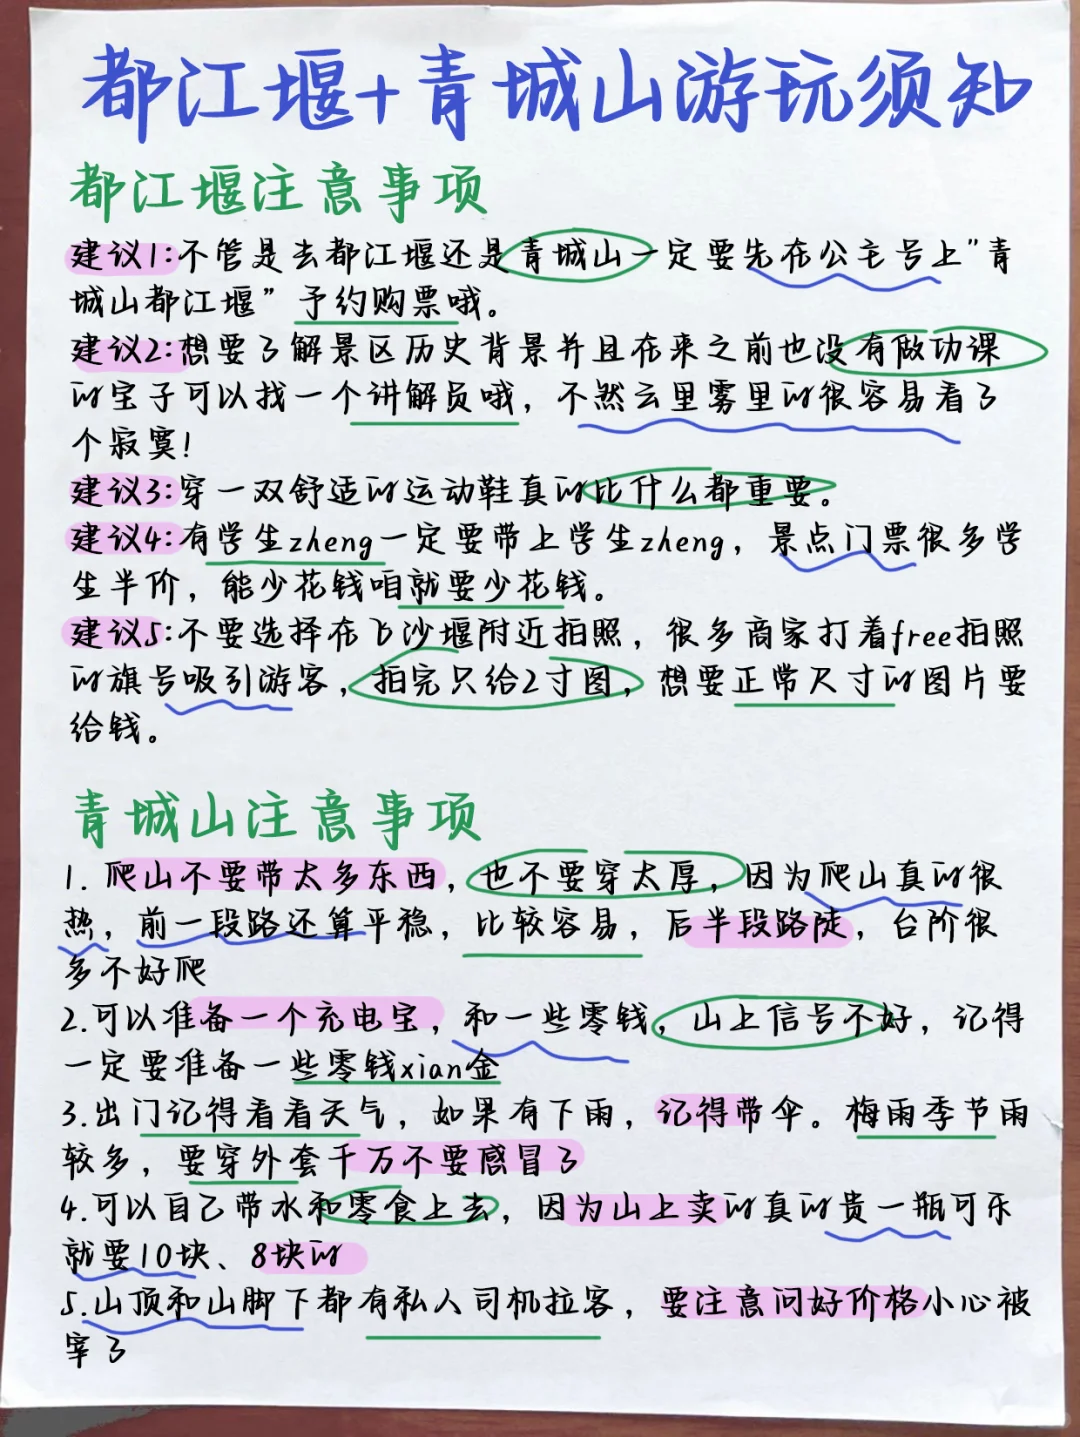 都江堰+青城山游玩须知
都江堰注意事项
建议1:不管是去都江堰还是青城山一定要先在公主号上"青
城山都江堰"予约购票哦。
建议2:想要了解景区历史背景并且在来之前也没有做功课
的宝子可以找一个讲解员哦，不然云里雾里的很容易看了
个寂寞!
建议3:穿一双舒适的运动鞋真的比什么都重要。
建议4:有学生zheng一定要带上学生zheng，景点门票很多学
生半价，能少花钱咱就要少花钱。
建议5:不要选择在飞沙堰附近拍照，很多商家打着free拍照
的旗号吸引游客，拍完只给2寸图，想要正常尺寸的图片要
给钱。
青城山注意事项
1.爬山不要带太多东西，也不要穿太厚，因为爬山真的很
热，前一段路还算平稳，比较容易，后半段路陡，台阶很
多不好爬
2.可以准备一个充电宝，和一些零钱，山上信号不好，记得
一定要准备一些零钱xian金
3.出门记得看看天气，如果有下雨，记得带伞。梅雨季节雨
较多，要穿外套千万不要感冒了
4.可以自己带水和零食上去，因为山上卖的真的贵一瓶可乐
就要10块、8块的
5.山顶和山脚下都有私人司机拉客，要注意问好价格小心被
宰了